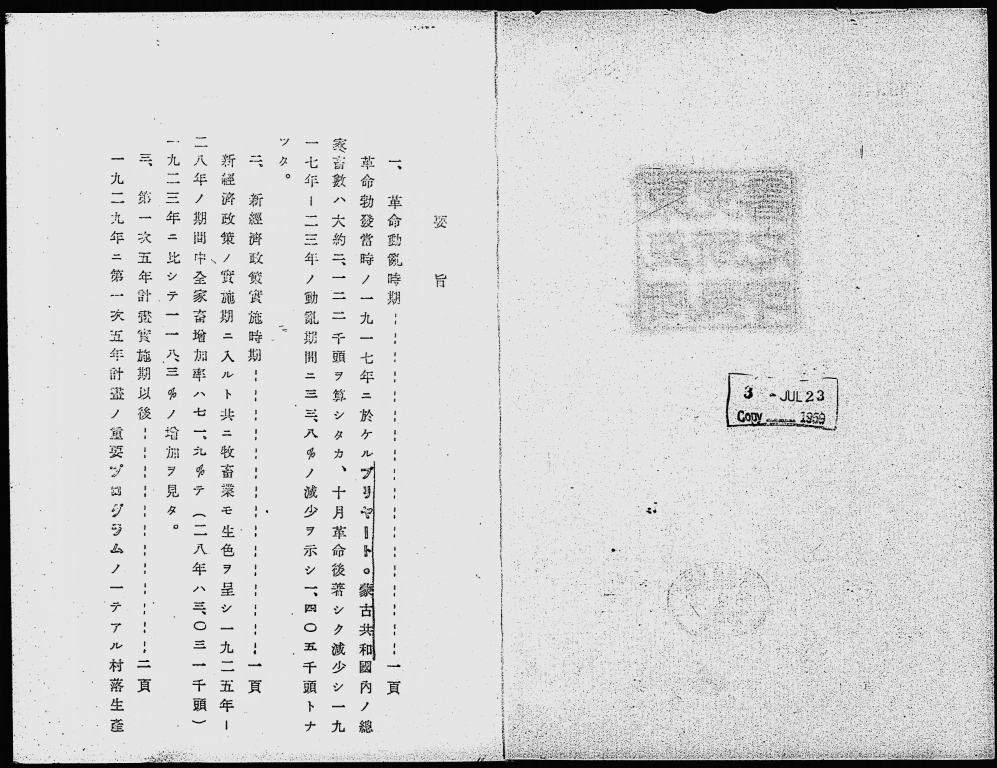 要旨
一、革命動亂時期-------------------一頁
革命勃發當時ノ一九一七年ニ於ケルブリヤート。蒙古共和國内ノ總
家畜數ハ大約二、一二二千頭ヲ算シタカ、十月革命後著シク減少シ一九
一七年ー二三年ノ動亂期間ニ三三、八%ノ減少ヲ示シ一、四〇五千頭トナ
ツタ。
二、新經濟政策實施時期----------------一頁
新經濟政策ノ實施期ニ入ルト共ニ牧畜業モ生色ヲ呈シ一九二五年ー
二八年ノ期間中全家畜增加率ハ七一、九%テ(二八年ハ三、〇三一千頭)
一九二三年ニ比シテ一一八、三%ノ增加ヲ見タ。
三、第一次五年計畫實施期以後-------------二頁
一九二九年ニ第一次五年計畫ノ重要プログラムノ一テアル村落生產
3 - JUL 23
Copy 1959